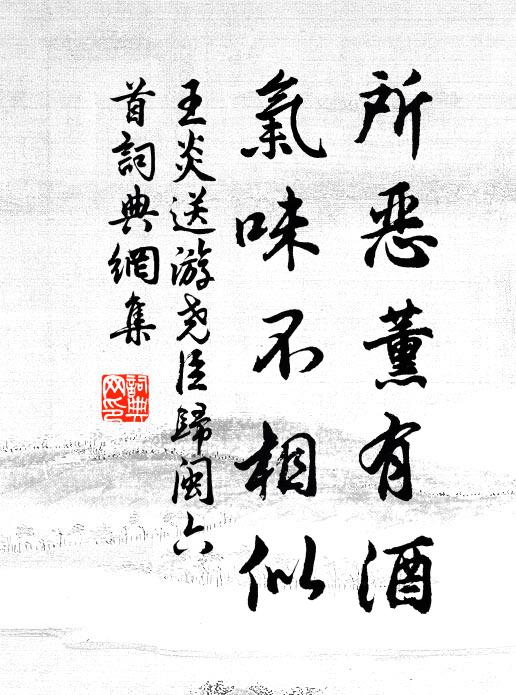 所恶薰有酒
氣味不相似
王炎送游尧臣歸闽六
首詞典網集
詞典
网印